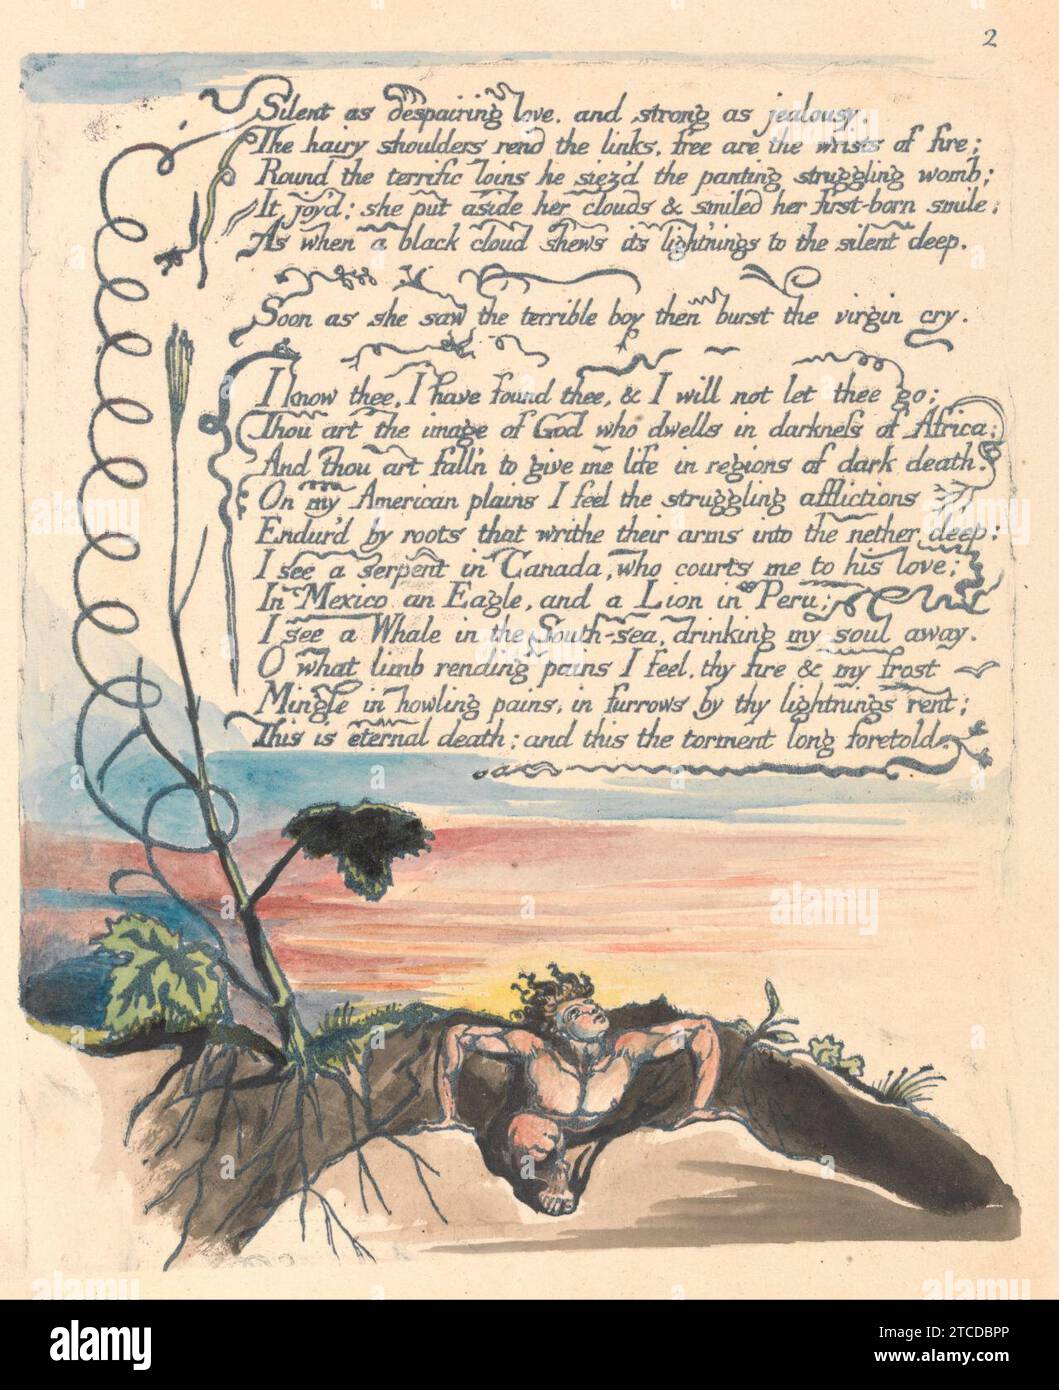 2
Silent as despairing love, and strong as jealousy,
The hairy shoulders rend the links, free are the wrists of fire;
Round the terrific loins he siez'd the panting struggling womb;
It joy'd: she put aside her clouds & smiled her first-born smile;
As when a black cloud shews its light'nings to the silent deep.
Soon as she saw the terrible boy then burst the virgin cry.
I know thee, I have found thee, & I will not let thee go;
Thou art the image of God who dwells in darkneſs of Africa;
And thou art fall'n to give me life in regions of dark death.
On my American plains I feel the struggling afflictions
Endur'd by roots that writhe their arms into the nether deep:
I see a serpent in Canada, who courts me to his love;
In Mexico an Eagle, and a Lion in Peru;
I see a Whale in the South-sea, drinking my soul away.
O what limb rending pains I feel, thy fire & my frost
Mingle in howling pains, in furrows by thy lightnings rent;
This is eternal death; and this the torment long foretold.
alamy
Image ID: 2TCDBPP
www.alamy.com